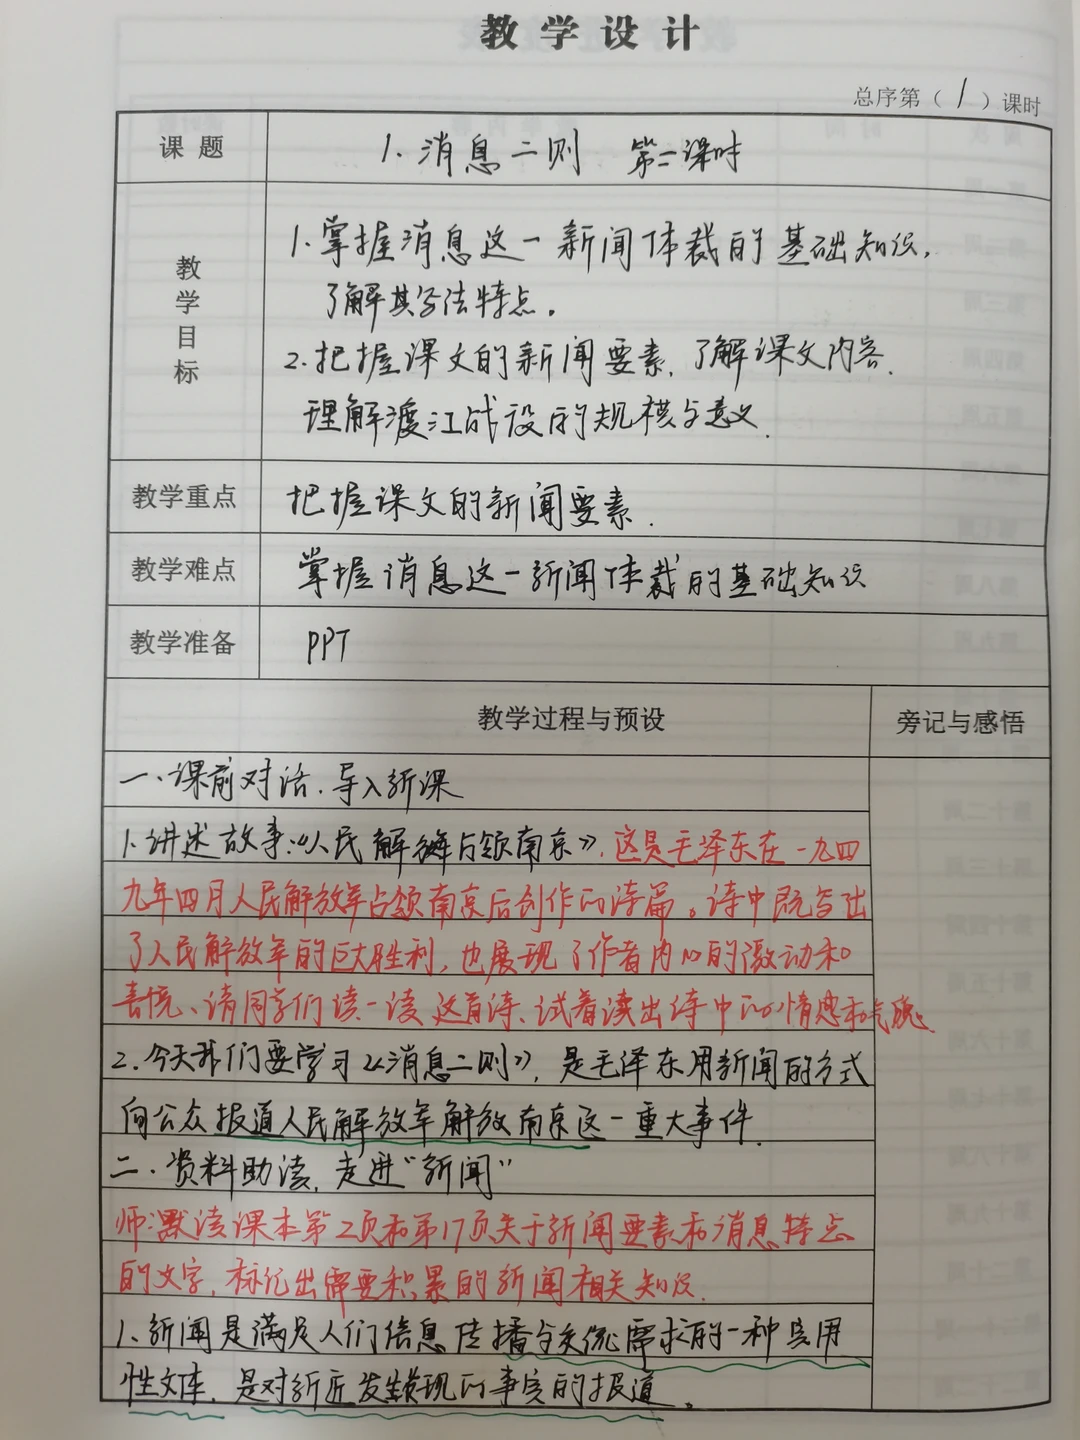 教学设计
总序第（1）课时
课题 1.消息二则 第一课时
教学目标
1.掌握消息这一新闻体裁的基础知识，
了解其写法特点。
2.把握课文的新闻要素，了解课文内容，
理解渡江战役的规模与意义。
教学重点 把握课文的新闻要素.
教学难点 掌握消息这一新闻体裁的基础知识
教学准备 PPT
教学过程与预设 旁记与感悟
一、课前对话，导入新课
1.讲述故事：《人民解放军占领南京》，这是毛泽东在一九四
九年四月人民解放军占领南京后创作的诗篇。诗中既写出
了人民解放军的巨大胜利，也展现了作者内心的激动和
喜悦、请同学们读一读这首诗、试着读出诗中的情感和气魄、
2.今天我们要学习《消息二则》，是毛泽东用新闻的方式
向公众报道人民解放军解放南京这一重大事件.
二、资料助读，走进“新闻”
师：默读课本第2页和第17页关于新闻要素和消息特点
的文字，标记出需要积累的新闻相关知识.
1.新闻是满足人们信息传播与交流需求的一种实用
性文体，是对新近发生发现的事实的报道。